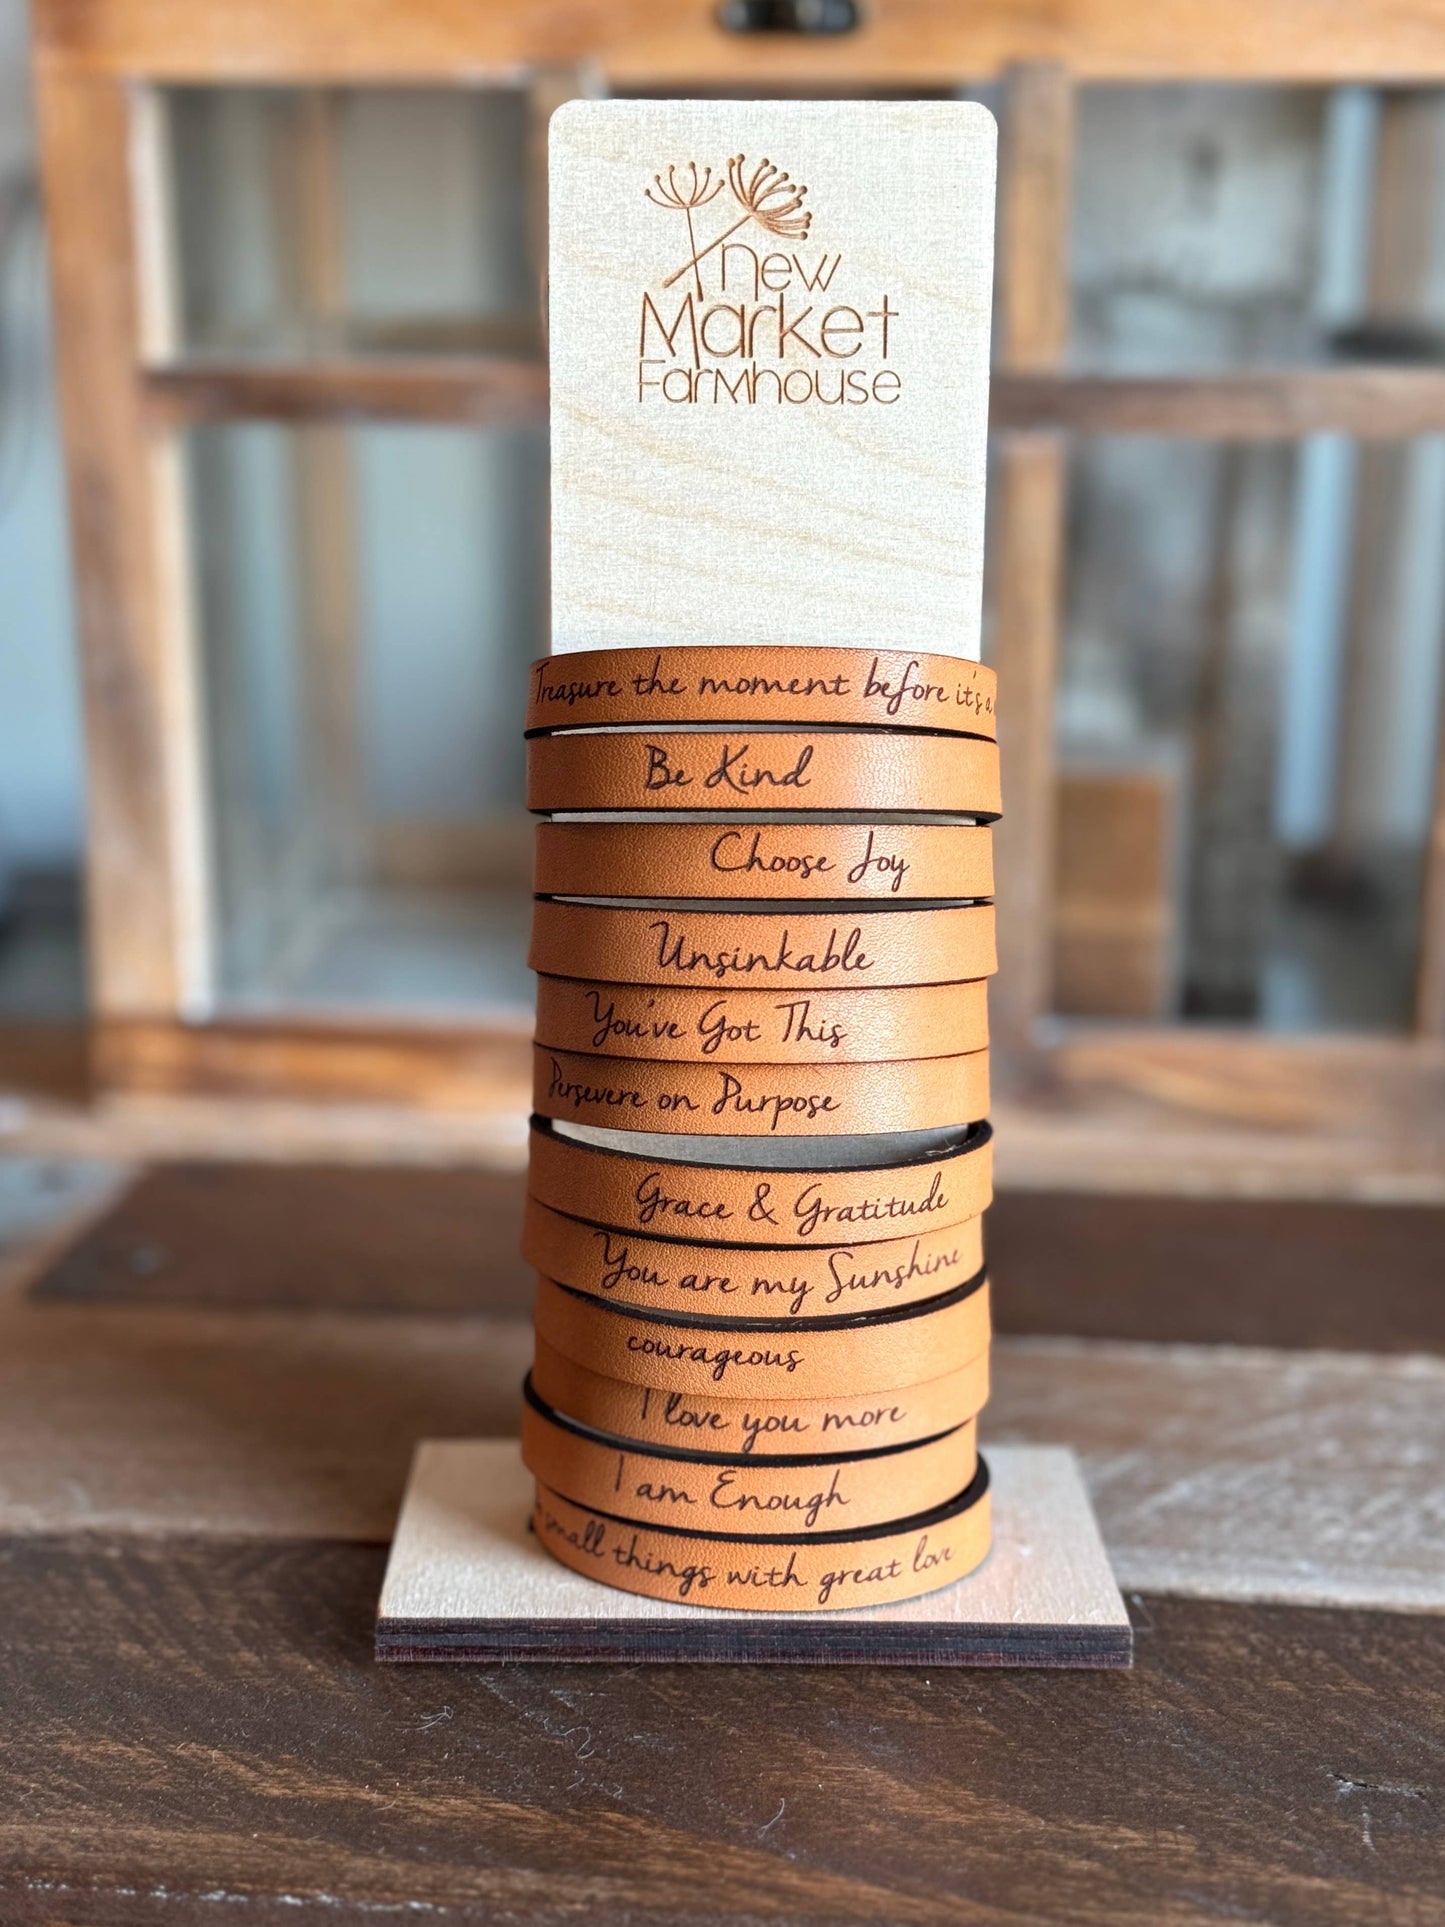 new
Market
Farmhouse
Treasure the moment before it's a
Be Kind
Choose Joy
Unsinkable
You've Got This
Persevere on Purpose
Grace & Gratitude
You are my Sunshine
courageous
I love you more
I am Enough
small things with great love